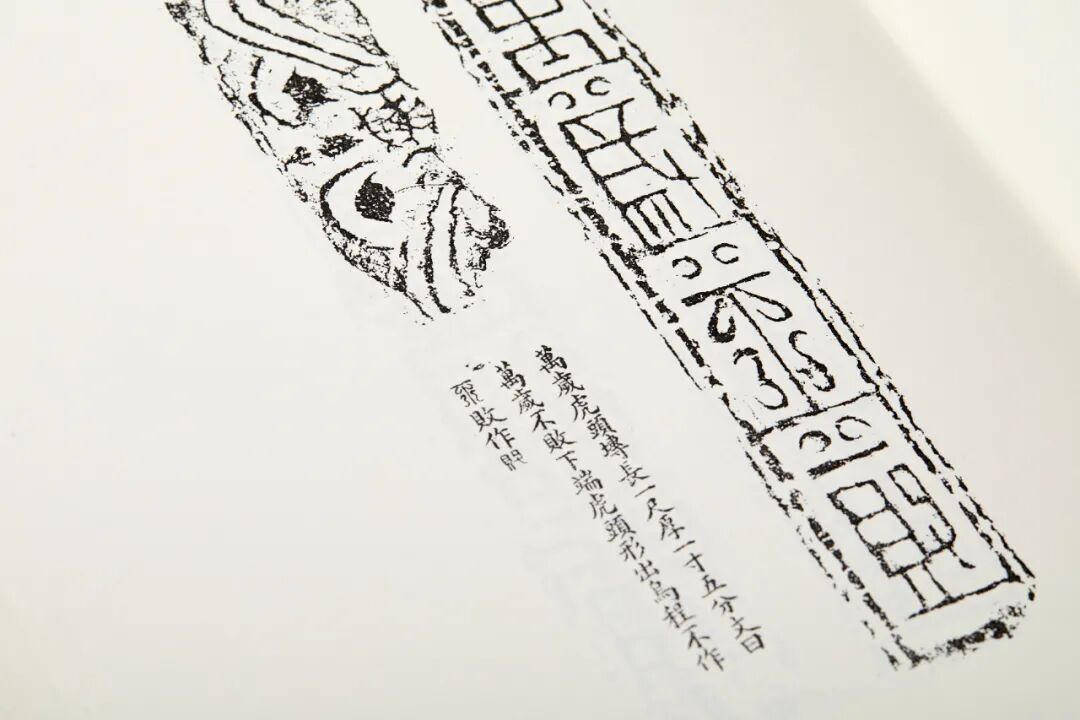 萬歲不敗
萬歲虎頭塼長一尺厚一寸五分文曰
萬歲不敗下端虎頭形出烏程不作
敗作